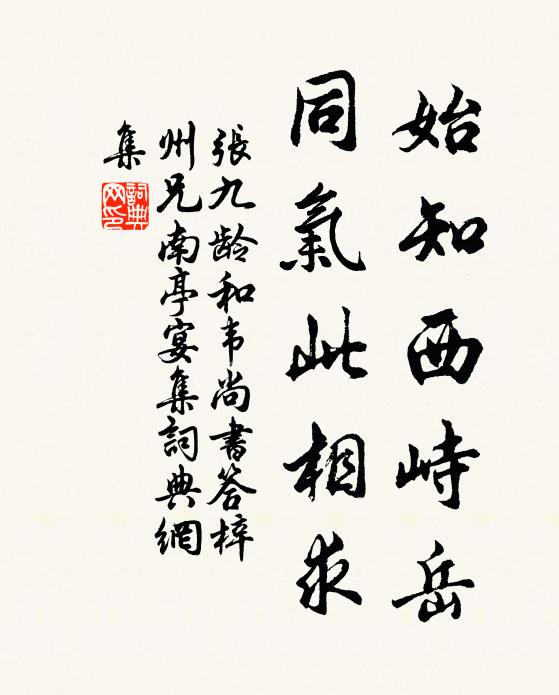 始知西峙岳
同氣此相求
張九龄和韦尚書答梓
州兄南亭宴集詞典網
集
詞典网印